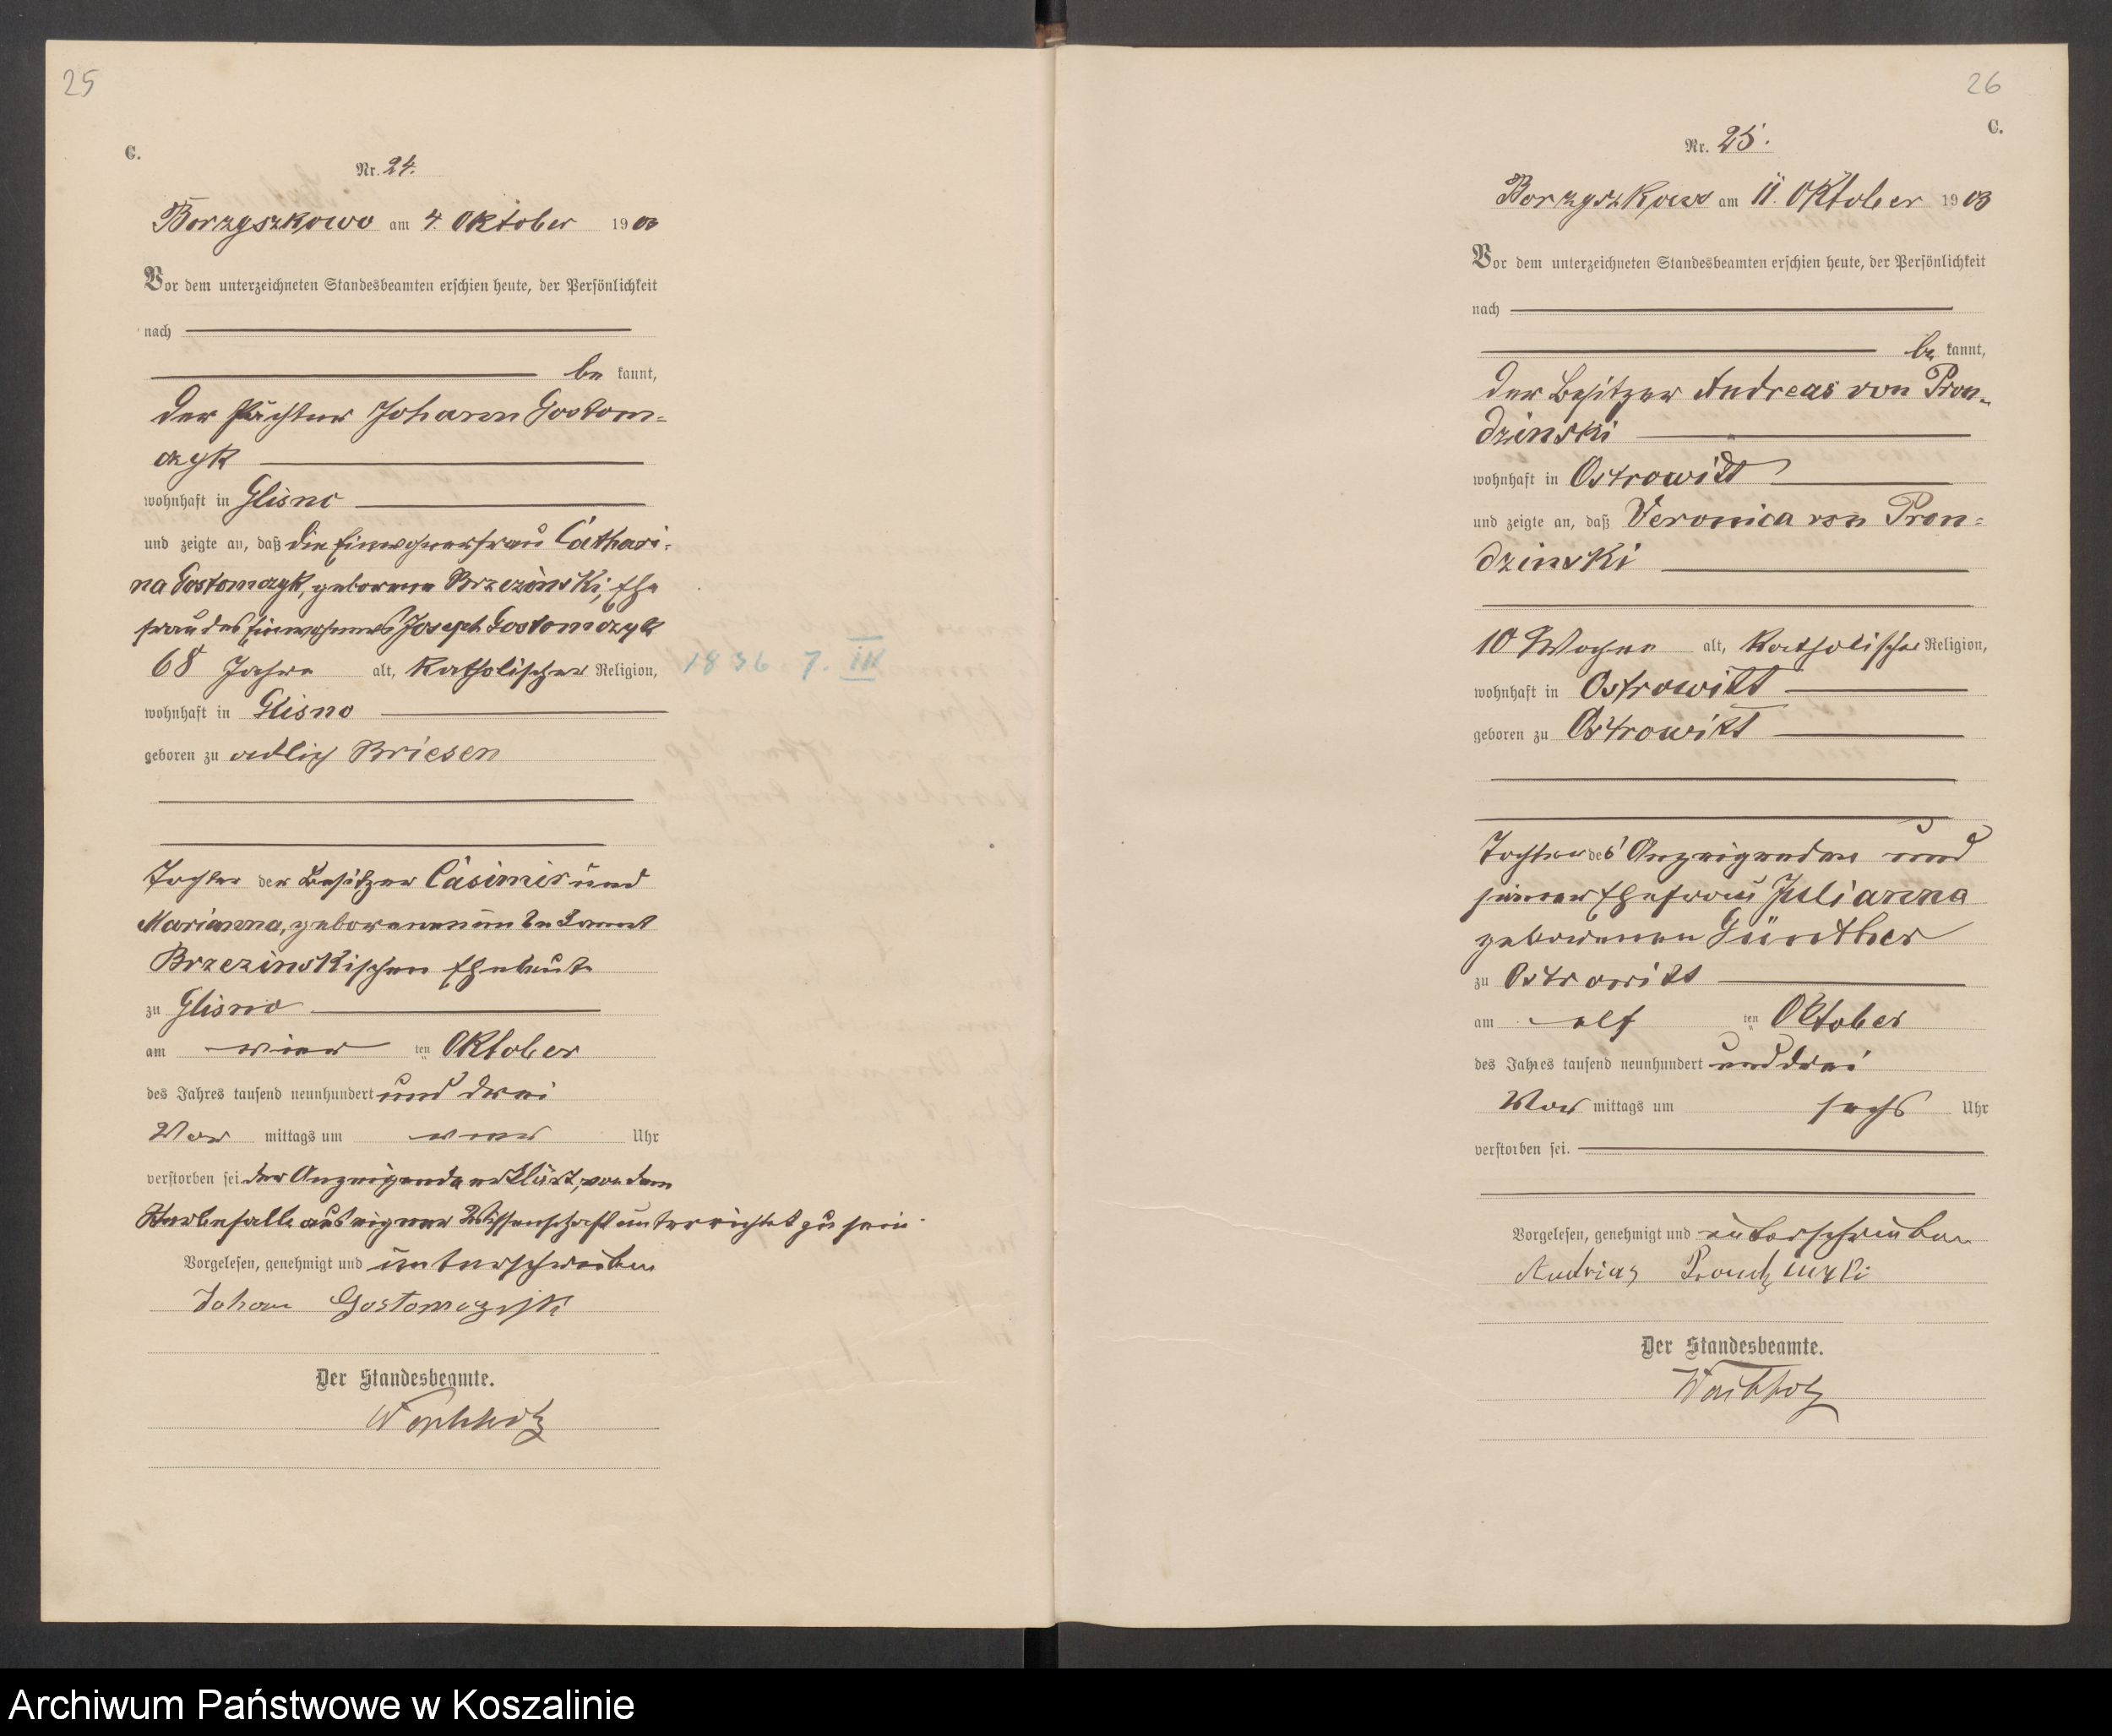 25
C.
Nr. 24.
Borzyszkowo am 4. Oktober 1903
Vor dem unterzeichneten Standesbeamten erschien heute, der Persönlichkeit
nach
be kannt,
der Pächter Johann Gostom=
czyk
wohnhaft in Glisno
und zeigte an, daß die Einwohnerfrau Cathari=
na Gostomczyk, geborene Brzezinski, Ehe
frau des Einwohners Joseph Gostomczyk
68 Jahre alt, katholischer Religion,
1836 7. III
wohnhaft in Glisno
geboren zu adlig Briesen
Tochter der Besitzer Casimir und
Marianna, geborenen unbekannt
Brzezinskischen Eheleute
zu Glisno
am vier ten Oktober
des Jahres tausend neunhundert und drei
Vor mittags um vier Uhr
verstorben sei der Anzeigende erklärt, von dem
Sterbefalle aus eigner Wissenschaft unterrichtet zu sein.
Vorgelesen, genehmigt und unterschrieben
Johan Gostomczyk
Der Standesbeamte.
26
C.
Nr. 25.
Borzyszkowo am 11. Oktober 1903
Vor dem unterzeichneten Standesbeamten erschien heute, der Persönlichkeit
nach
be kannt,
der Besitzer Andreas von Pron=
dzinski
wohnhaft in Ostrowitt
und zeigte an, daß Veronica von Pron=
dzinski
10 Wochen alt, katholischer Religion,
wohnhaft in Ostrowitt
geboren zu Ostrowitt
Tochter des Anzeigenden und
seiner Ehefrau Julianna
geborenen Günther
zu Ostrowitt
am elf ten Oktober
des Jahres tausend neunhundert und drei
Vor mittags um sechs Uhr
verstorben sei.
Vorgelesen, genehmigt und unterschrieben
Andrias Prondzinski
Der Standesbeamte.
Archiwum Państwowe w Koszalinie